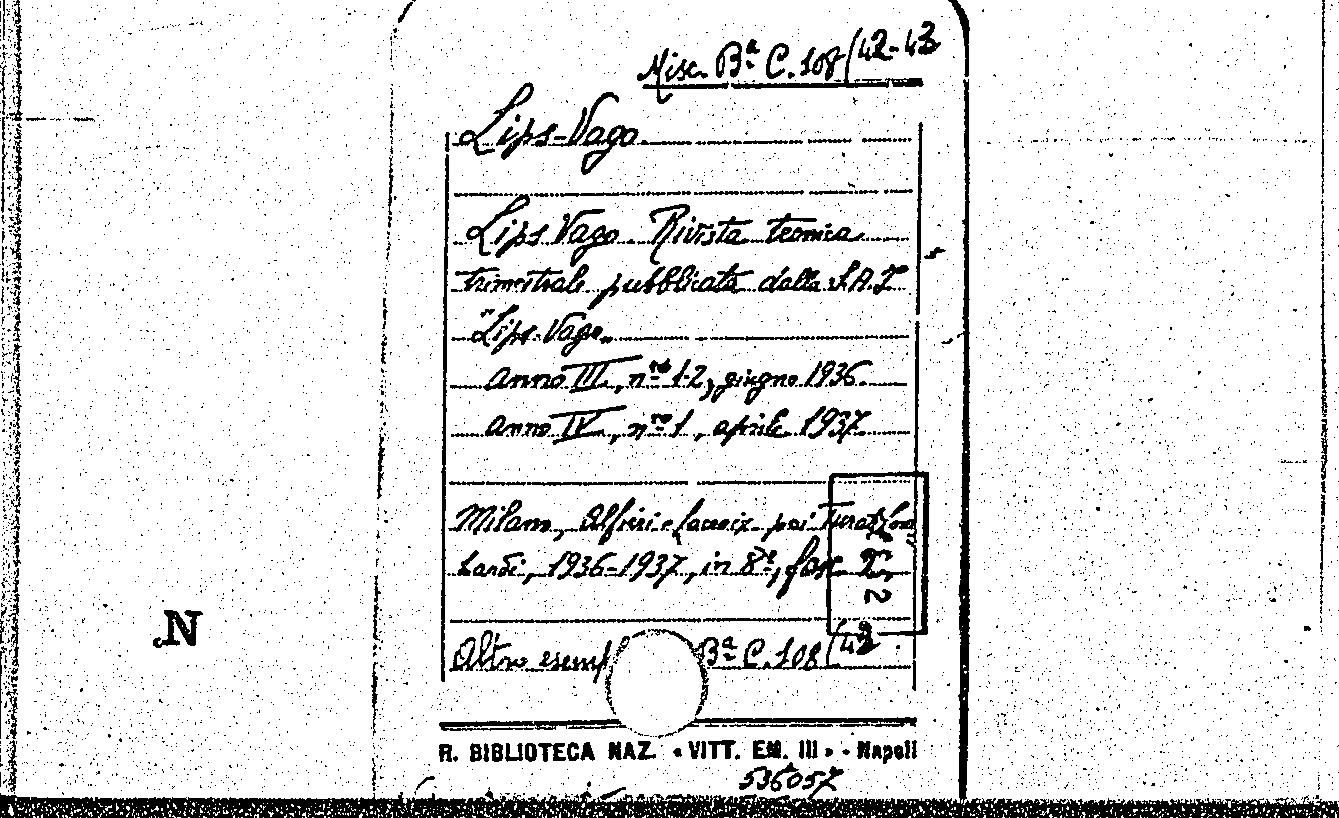 Misc. Bª C. 108/42-43
Lips-Vago
Lips Vago. Rivista tecnica
trimestrale pubblicata dalla S.A.I
"Lips-Vago"
Anno III, nro 1-2, giugno 1936.
Anno IV, nro 1, aprile 1937.
Milano, Alfieri e Lacroix poi Turati Lom
bardi, 1936-1937, in 8º, fasc. 2
Altro esempl Bª C. 108/42
R. BIBLIOTECA NAZ. « VITT. EM. III » - Napoli
536057
N